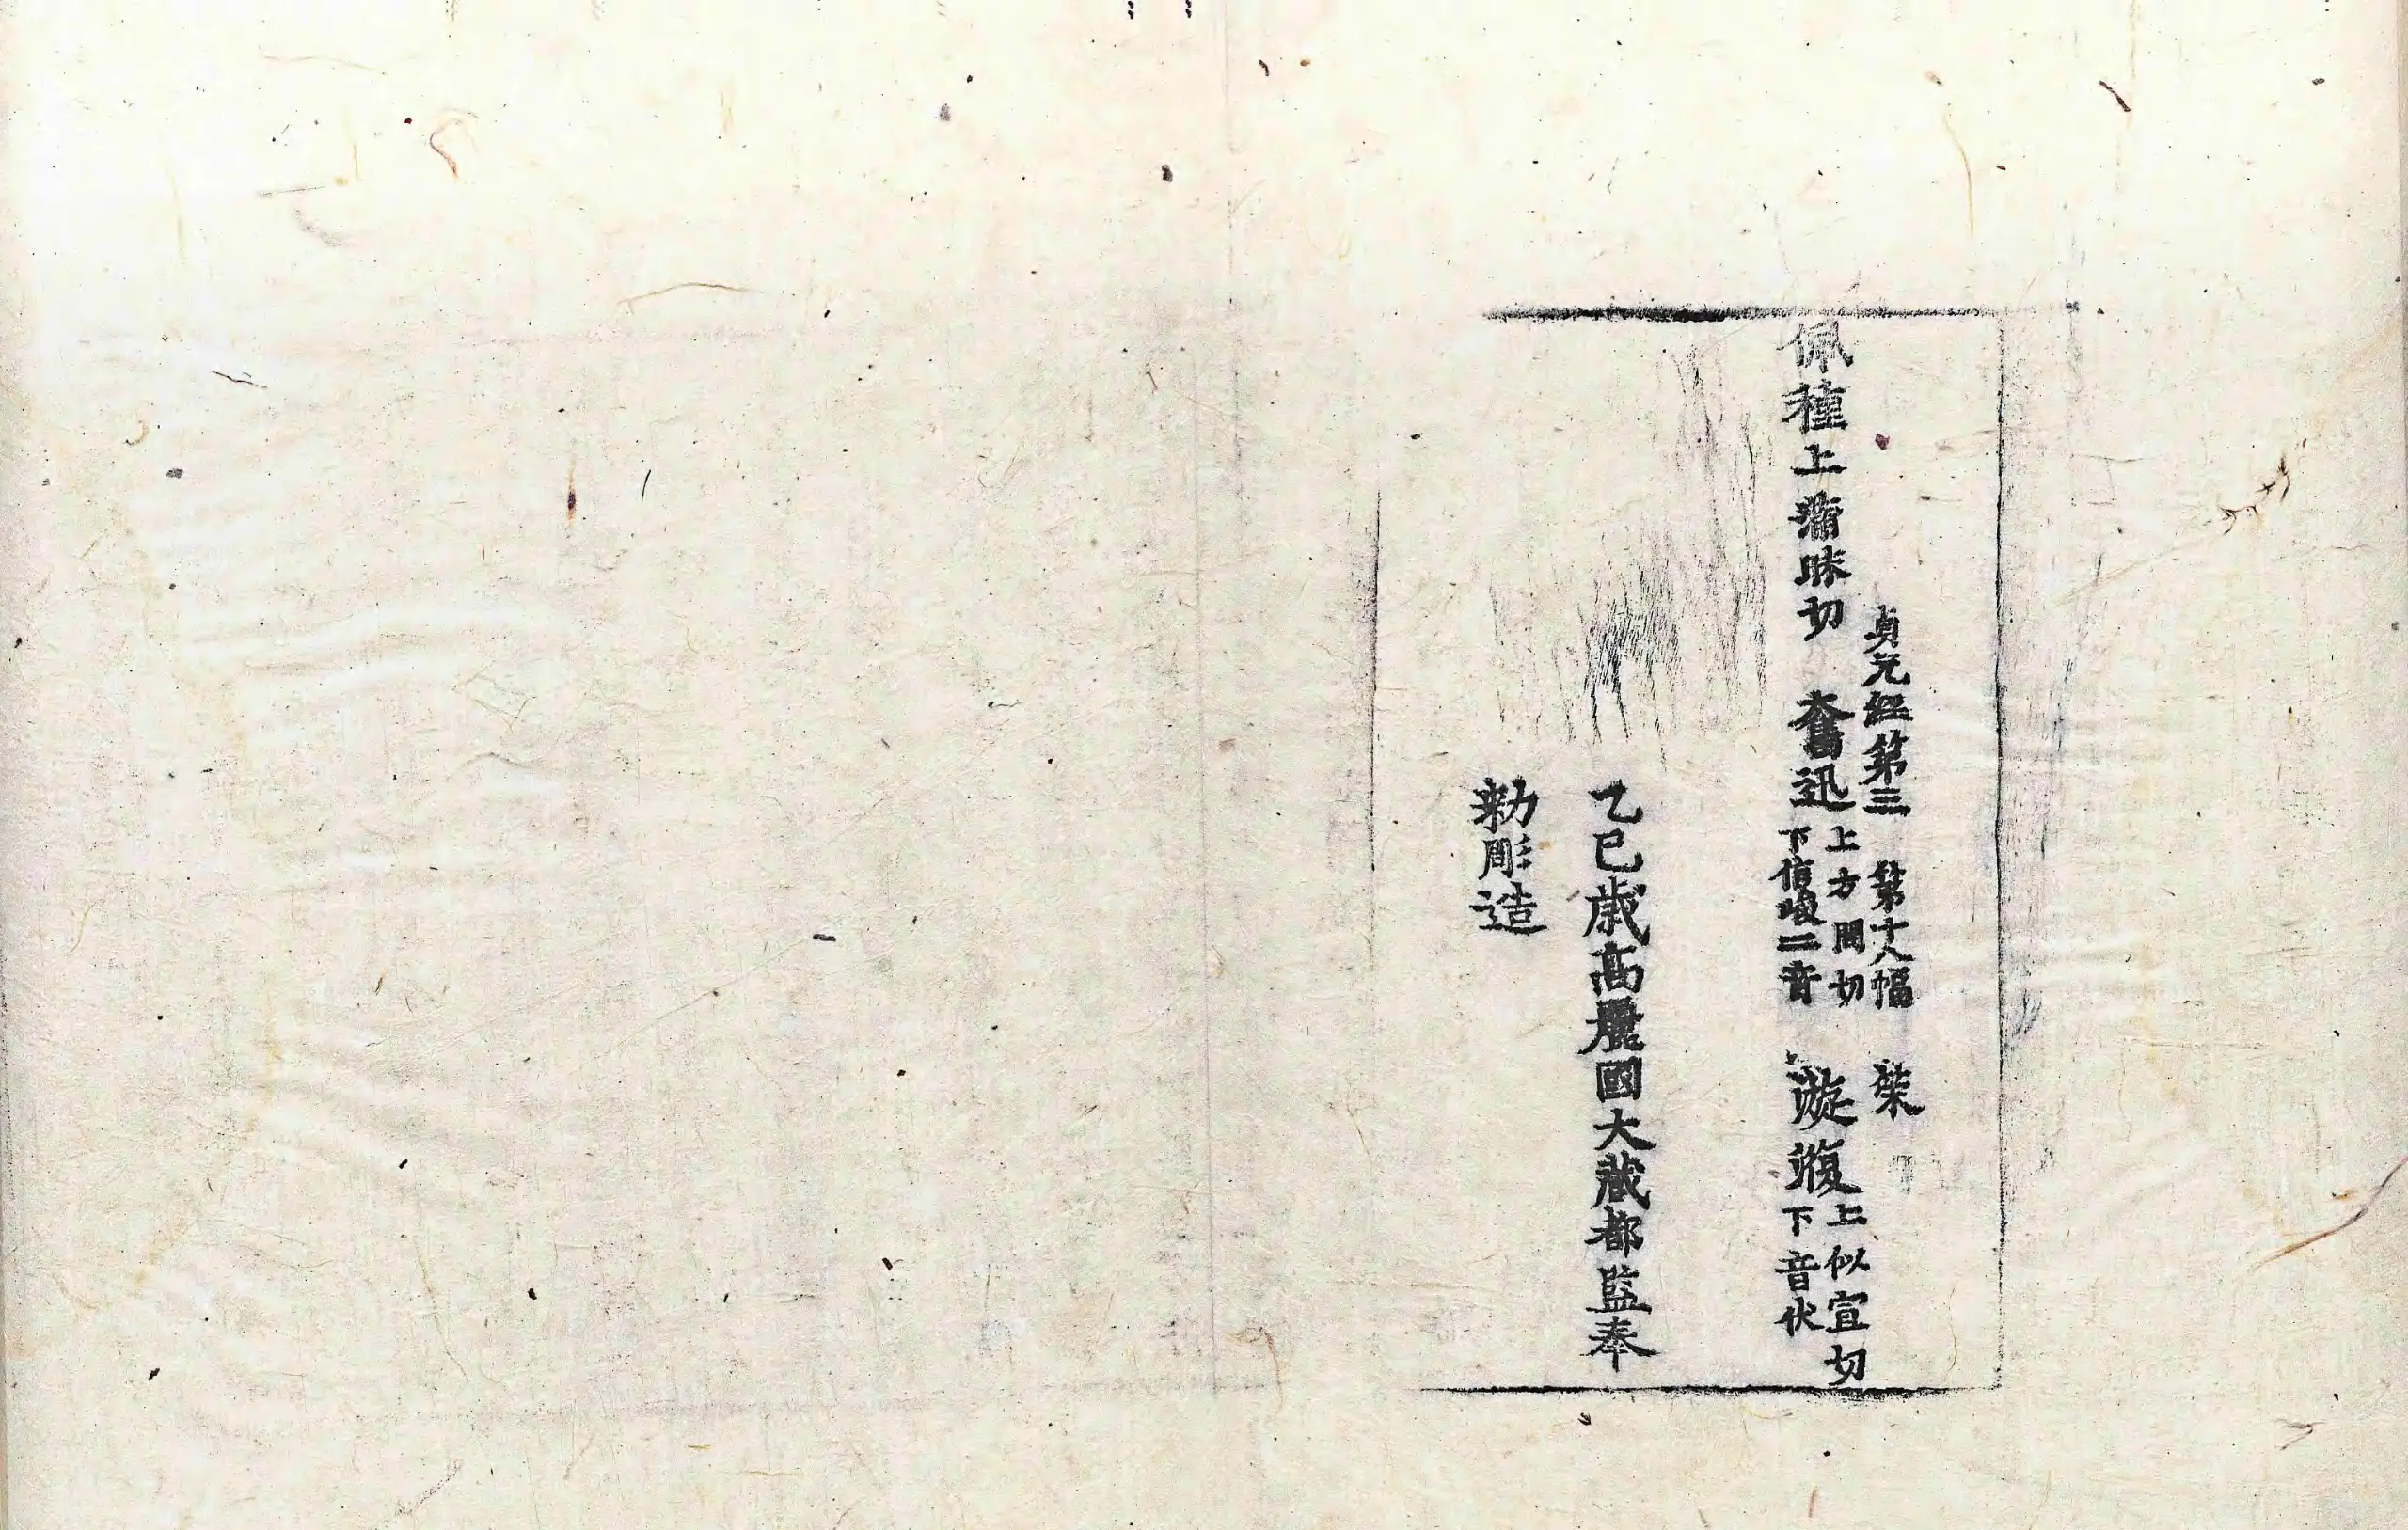 貞元經第三 第十八幅 䒭
佩種上蒲昧切 奮迅上方問切下信峻二音 澓上似宣切下音伏
乙巳歲高麗國大藏都監奉
勑彫造